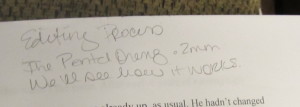 Editing Process
The Pentel Orenz .2mm
We'll see how it works.
already up, as usual. He hadn't changed